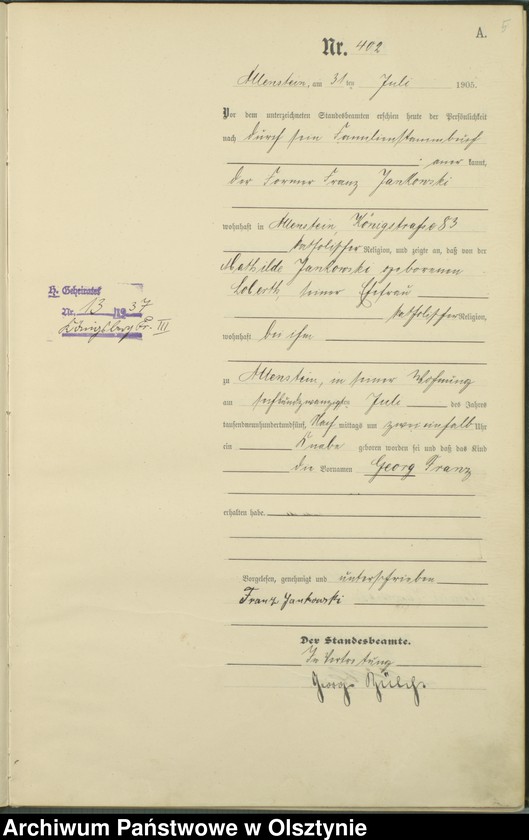 A.
5
Nr. 402
Allenstein, am 31 ten Juli 1905.
Vor dem unterzeichneten Standesbeamten erschien heute der Persönlichkeit
nach durch sein Familienstammbuch
anerkannt,
der Former Franz Jankowski
wohnhaft in Allenstein, Königstraße 83
katholischer Religion, und zeigte an, daß von der
Mathilde Jankowski geborenen
seiner Ehefrau
katholischer Religion,
wohnhaft bei ihm
zu Allenstein, in seiner Wohnung
am Juli des Jahres
tausendneunhundertundfünf, Nachmittags um zweieinhalb Uhr
ein Knabe geboren worden sei und daß das Kind
die Vornamen Georg Franz
erhalten habe.
Vorgelesen, genehmigt und unterschrieben
Franz Jankowski
Der Standesbeamte.
In Vertretung
Georg
H. Geheiratet
Nr. 13/1937
Königsberg Pr. III
Archiwum Państwowe w Olsztynie